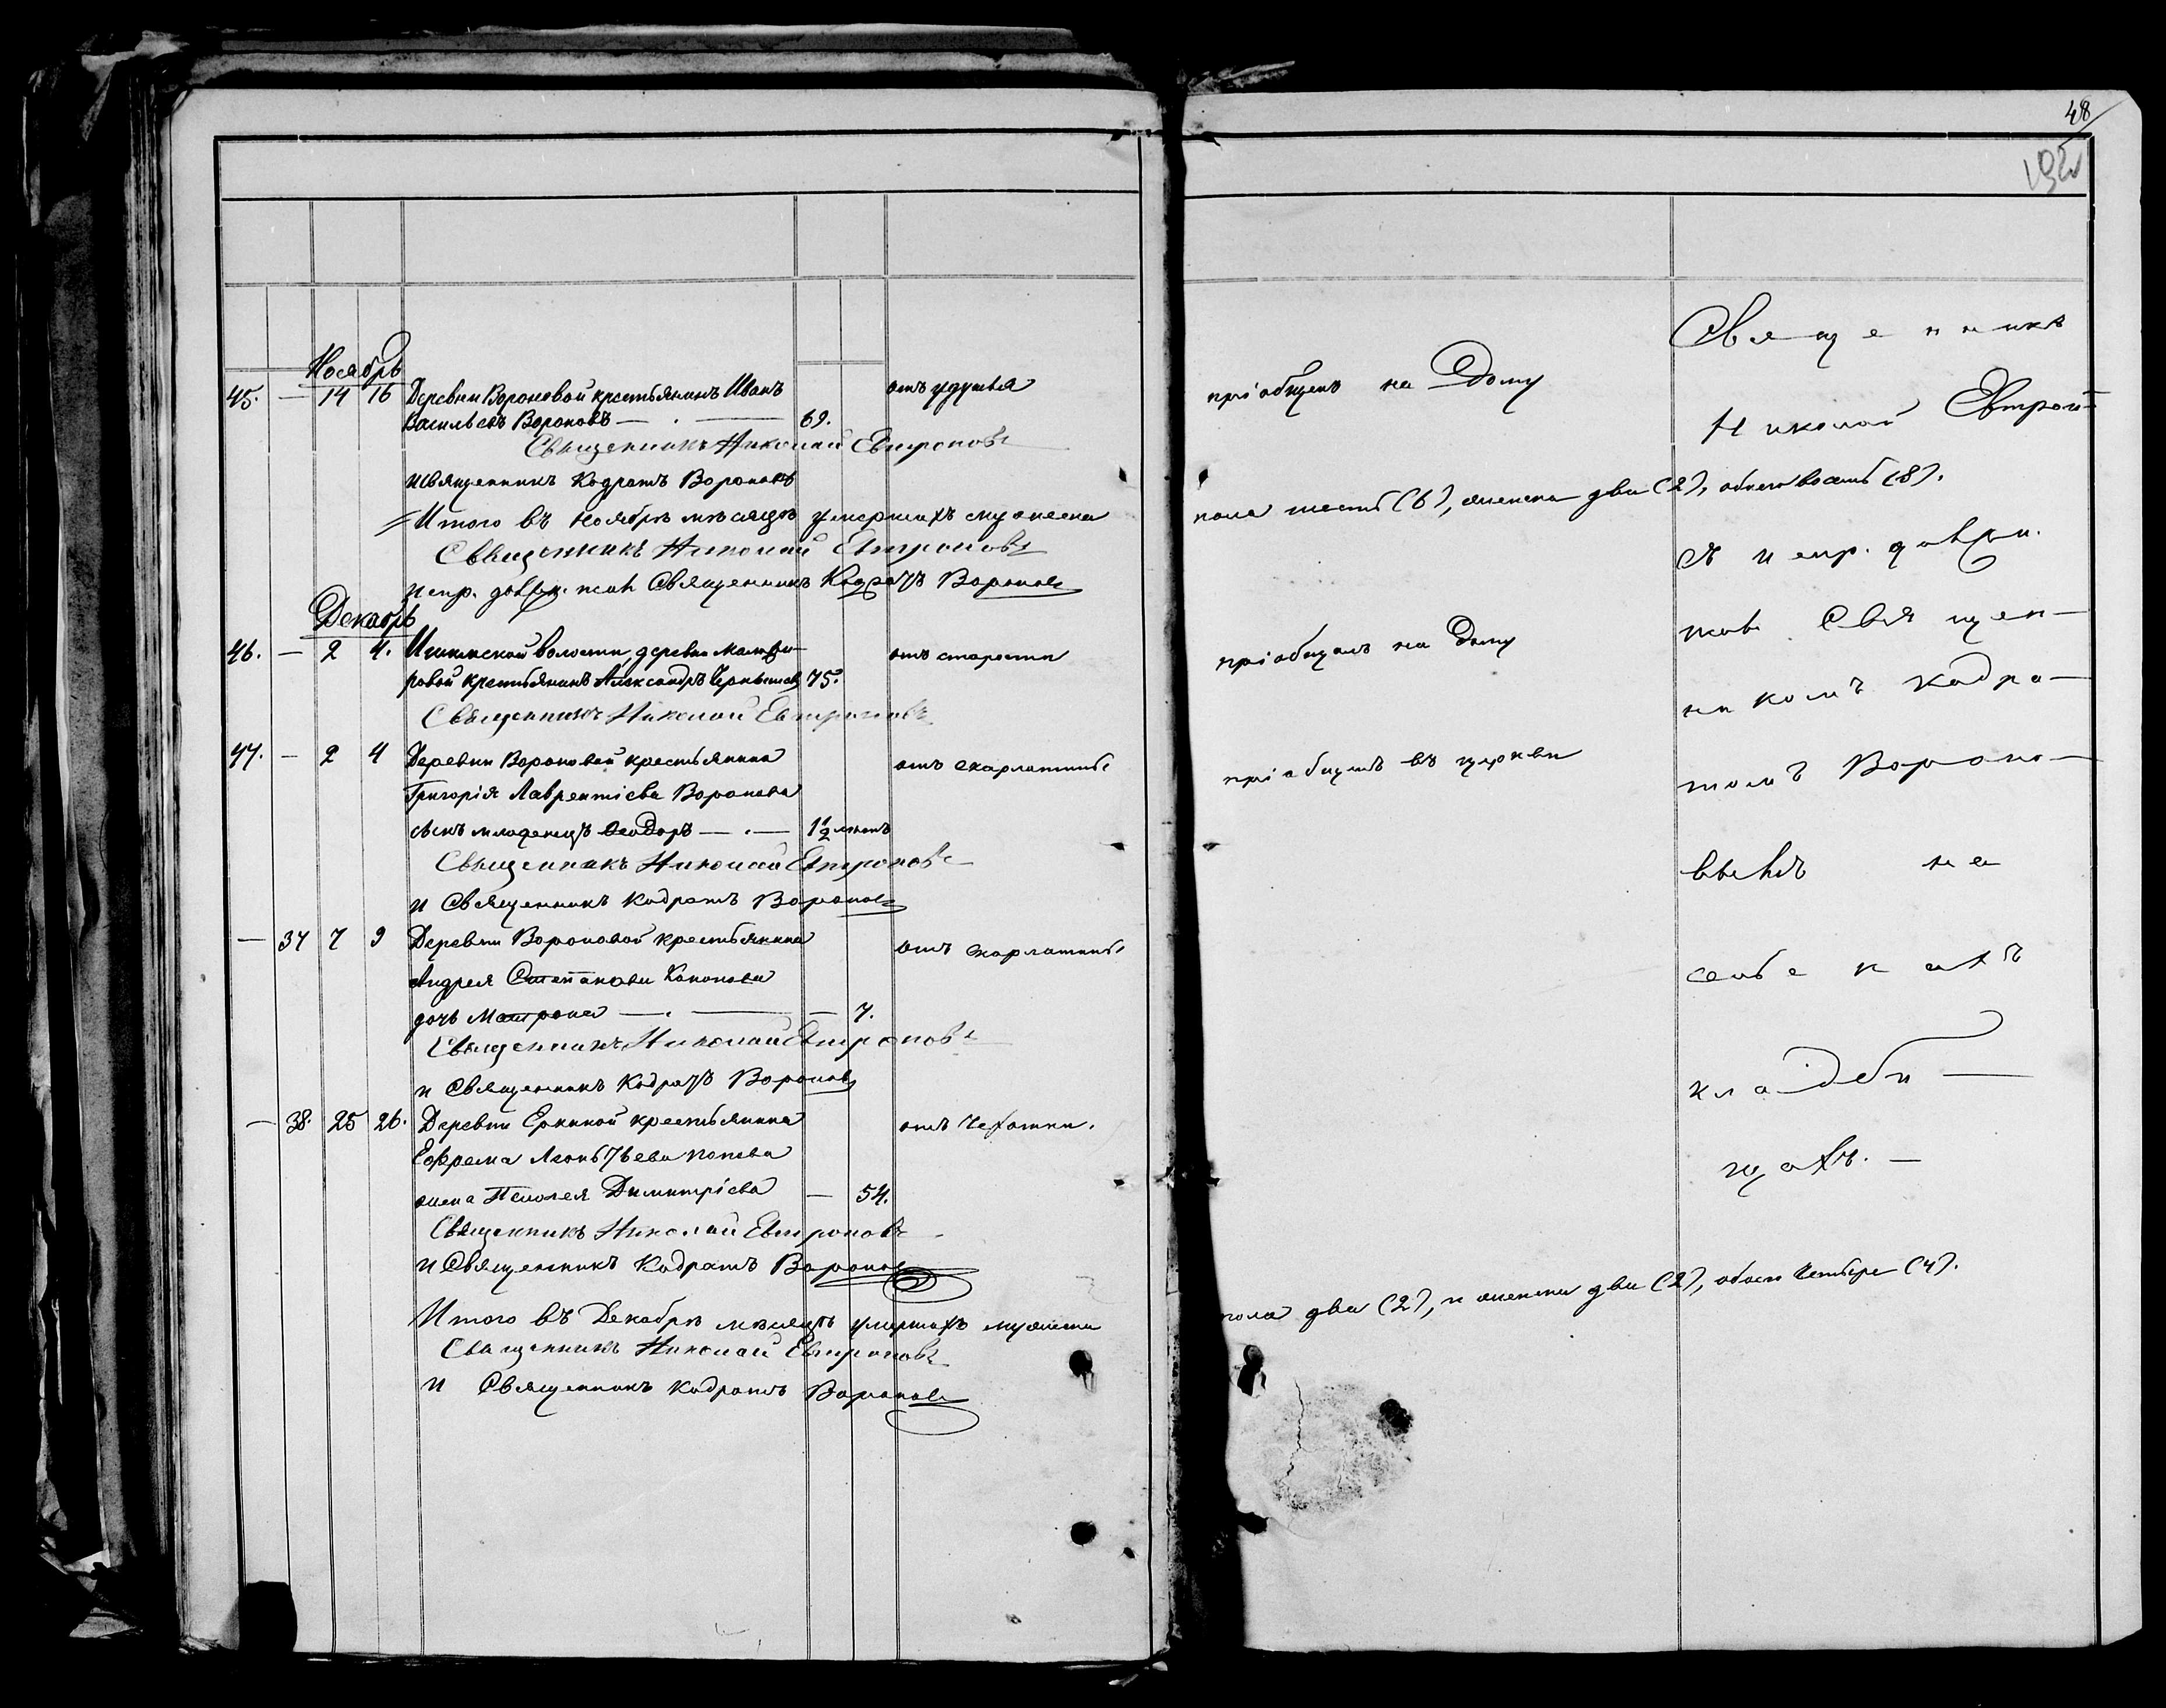 48
192
Ноябрь
45. — 14 16 Деревни Вороновой крестьянинъ Иванъ
Васильевъ Вороновъ — 69. отъ удушья
пріобщенъ на дому
Священникъ Николай Евтроповъ
и священникъ Кодратъ Вороновъ
Итого въ Ноябрѣ мѣсяцѣ умершихъ мужеска
пола шесть (6), женска два (2), обоего восемь (8).
Священникъ Николай Евтроповъ
и Священникъ Кодратъ Вороновъ
Декабрь
46. — 2 4. волости, деревни
ровой крестьянинъ Александръ Чернышевъ 75. отъ старости
пріобщенъ на дому
Священникъ Николай Евтроповъ
47. — 2 4 Деревни Вороновой крестьянина
Григорія Лаврентіева Воронова
сынъ младенецъ Ѳеодоръ — 1½ лѣтъ отъ скарлатины
пріобщенъ въ церкви
Священникъ Николай Евтроповъ
и Священникъ Кодратъ Вороновъ
— 37 7 9 Деревни Вороновой крестьянина
Андрея Степанова Кононова
дочь Матрона — 7. отъ скарлатины
Священникъ Николай Евтроповъ
и Священникъ Кодратъ Вороновъ
— 38. 25 26. Деревни крестьянина
Ефрема Леонтьева Попова
жена Пелагея Димитріева — 54. отъ чахотки.
Священникъ Николай Евтроповъ
и Священникъ Кодратъ Вороновъ
Итого въ Декабрѣ мѣсяцѣ умершихъ мужеска
пола два (2), и женска два (2), обоего четыре (4).
Священникъ Николай Евтроповъ
и Священникъ Кодратъ Вороновъ
Священникъ
Николай Евтроп
съ
Священ-
никомъ Кодра-
томъ Вороно-
вымъ на
кладби-
щахъ. —